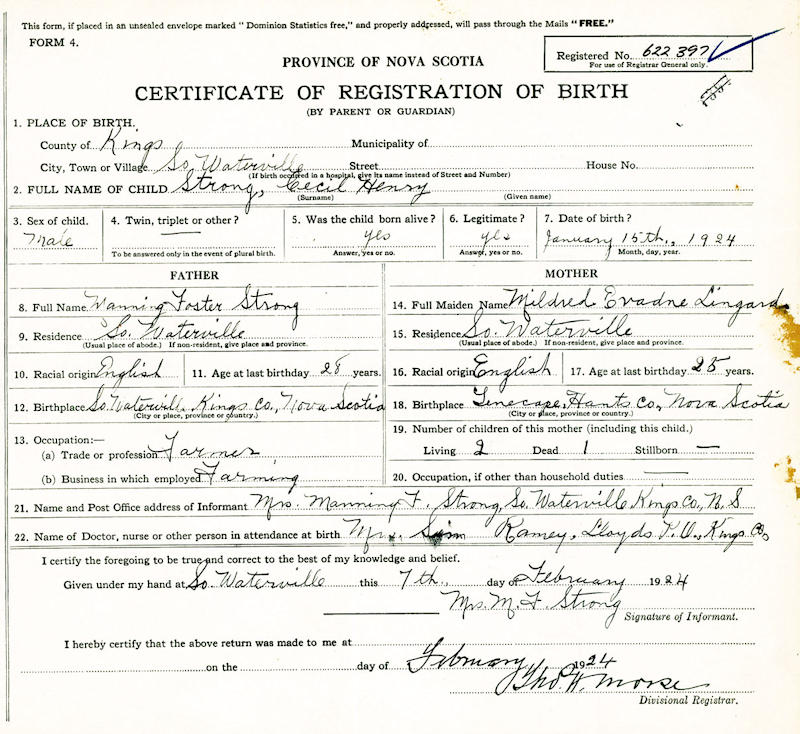 This form, if placed in an unsealed envelope marked "Dominion Statistics free," and properly addressed, will pass through the Mails "FREE."
FORM 4.
Registered No. 622397
For use of Registrar General only.
PROVINCE OF NOVA SCOTIA
CERTIFICATE OF REGISTRATION OF BIRTH
(BY PARENT OR GUARDIAN)
1. PLACE OF BIRTH.
County of Kings Municipality of
City, Town or Village So. Waterville Street House No.
(If birth occurred in a hospital, give its name instead of Street and Number)
2. FULL NAME OF CHILD Strong, Cecil Henry
(Surname) (Given name)
3. Sex of child. 4. Twin, triplet or other? 5. Was the child born alive? 6. Legitimate? 7. Date of birth?
Male — yes yes January 15th., 1924
To be answered only in the event of plural birth. Answer, yes or no. Answer, yes or no. Month, day, year.
FATHER
8. Full Name Manning Foster Strong
9. Residence So. Waterville
(Usual place of abode.) If non-resident, give place and province.
10. Racial origin English 11. Age at last birthday 28 years.
12. Birthplace So. Waterville, Kings Co., Nova Scotia
(City or place, province or country.)
13. Occupation:—
(a) Trade or profession Farmer
(b) Business in which employed Farming
MOTHER
14. Full Maiden Name Mildred Evadne Lingard
15. Residence So. Waterville
(Usual place of abode.) If non-resident, give place and province.
16. Racial origin English 17. Age at last birthday 25 years.
18. Birthplace Tenecape, Hants Co., Nova Scotia
(City or place, province or country.)
19. Number of children of this mother (including this child.)
Living 2 Dead 1 Stillborn —
20. Occupation, if other than household duties —
21. Name and Post Office address of Informant Mrs. Manning F. Strong, So. Waterville, Kings Co., N. S
22. Name of Doctor, nurse or other person in attendance at birth Mrs. Sam Ramey, Lloyds P. O., Kings Co,
I certify the foregoing to be true and correct to the best of my knowledge and belief.
Given under my hand at So. Waterville this 7th. day of February 1924
Mrs. M. F. Strong
Signature of Informant.
I hereby certify that the above return was made to me at
on the day of February 1924
Thos. H. Morse
Divisional Registrar.